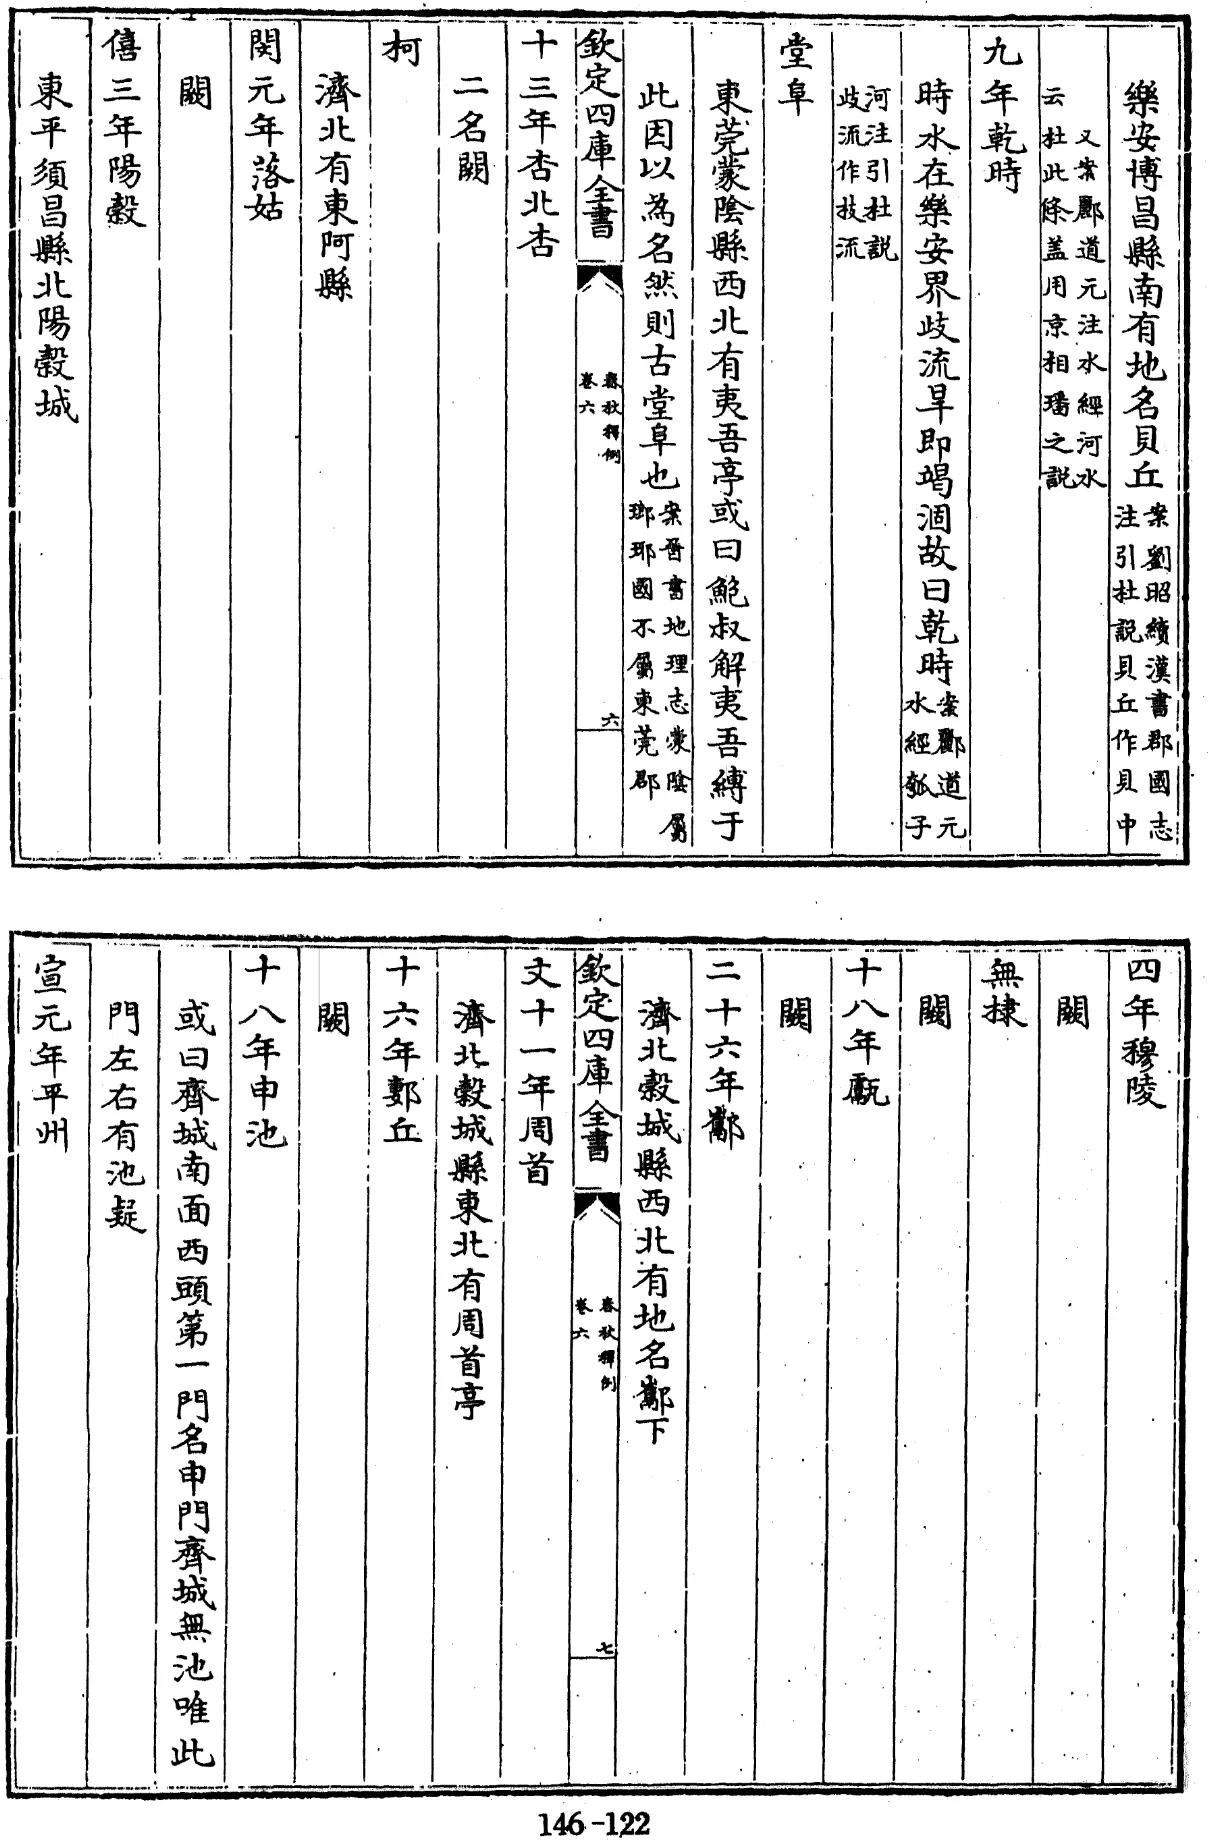 樂安博昌縣南有地名貝丘案劉昭續漢書郡國志注引杜説貝丘作貝中
又案酈道元注水經河水云杜此條盖用京相璠之説
九年乾時
時水在樂安界歧流旱即竭涸故曰乾時案酈道元水經瓠子
河注引杜説歧流作技流
堂阜
東莞蒙陰縣西北有夷吾亭或曰鮑叔解夷吾縛于
此因以為名然則古堂阜也案晉書地理志蒙陰屬瑯耶國不屬東莞郡
欽定四庫全書
春秋釋例
卷六
六
十三年杏北杏
二名闕
柯
濟北有東阿縣
閔元年落姑
闕
僖三年陽穀
東平須昌縣北陽穀城
四年穆陵
闕
無棣
闕
十八年甗
闕
二十六年酅
濟北穀城縣西北有地名酅下
欽定四庫全書
春秋釋例
卷六
七
文十一年周首
濟北穀城縣東北有周首亭
十六年郪丘
闕
十八年申池
或曰齊城南面西頭第一門名申門齊城無池唯此
門左右有池疑
宣元年平州
146-122